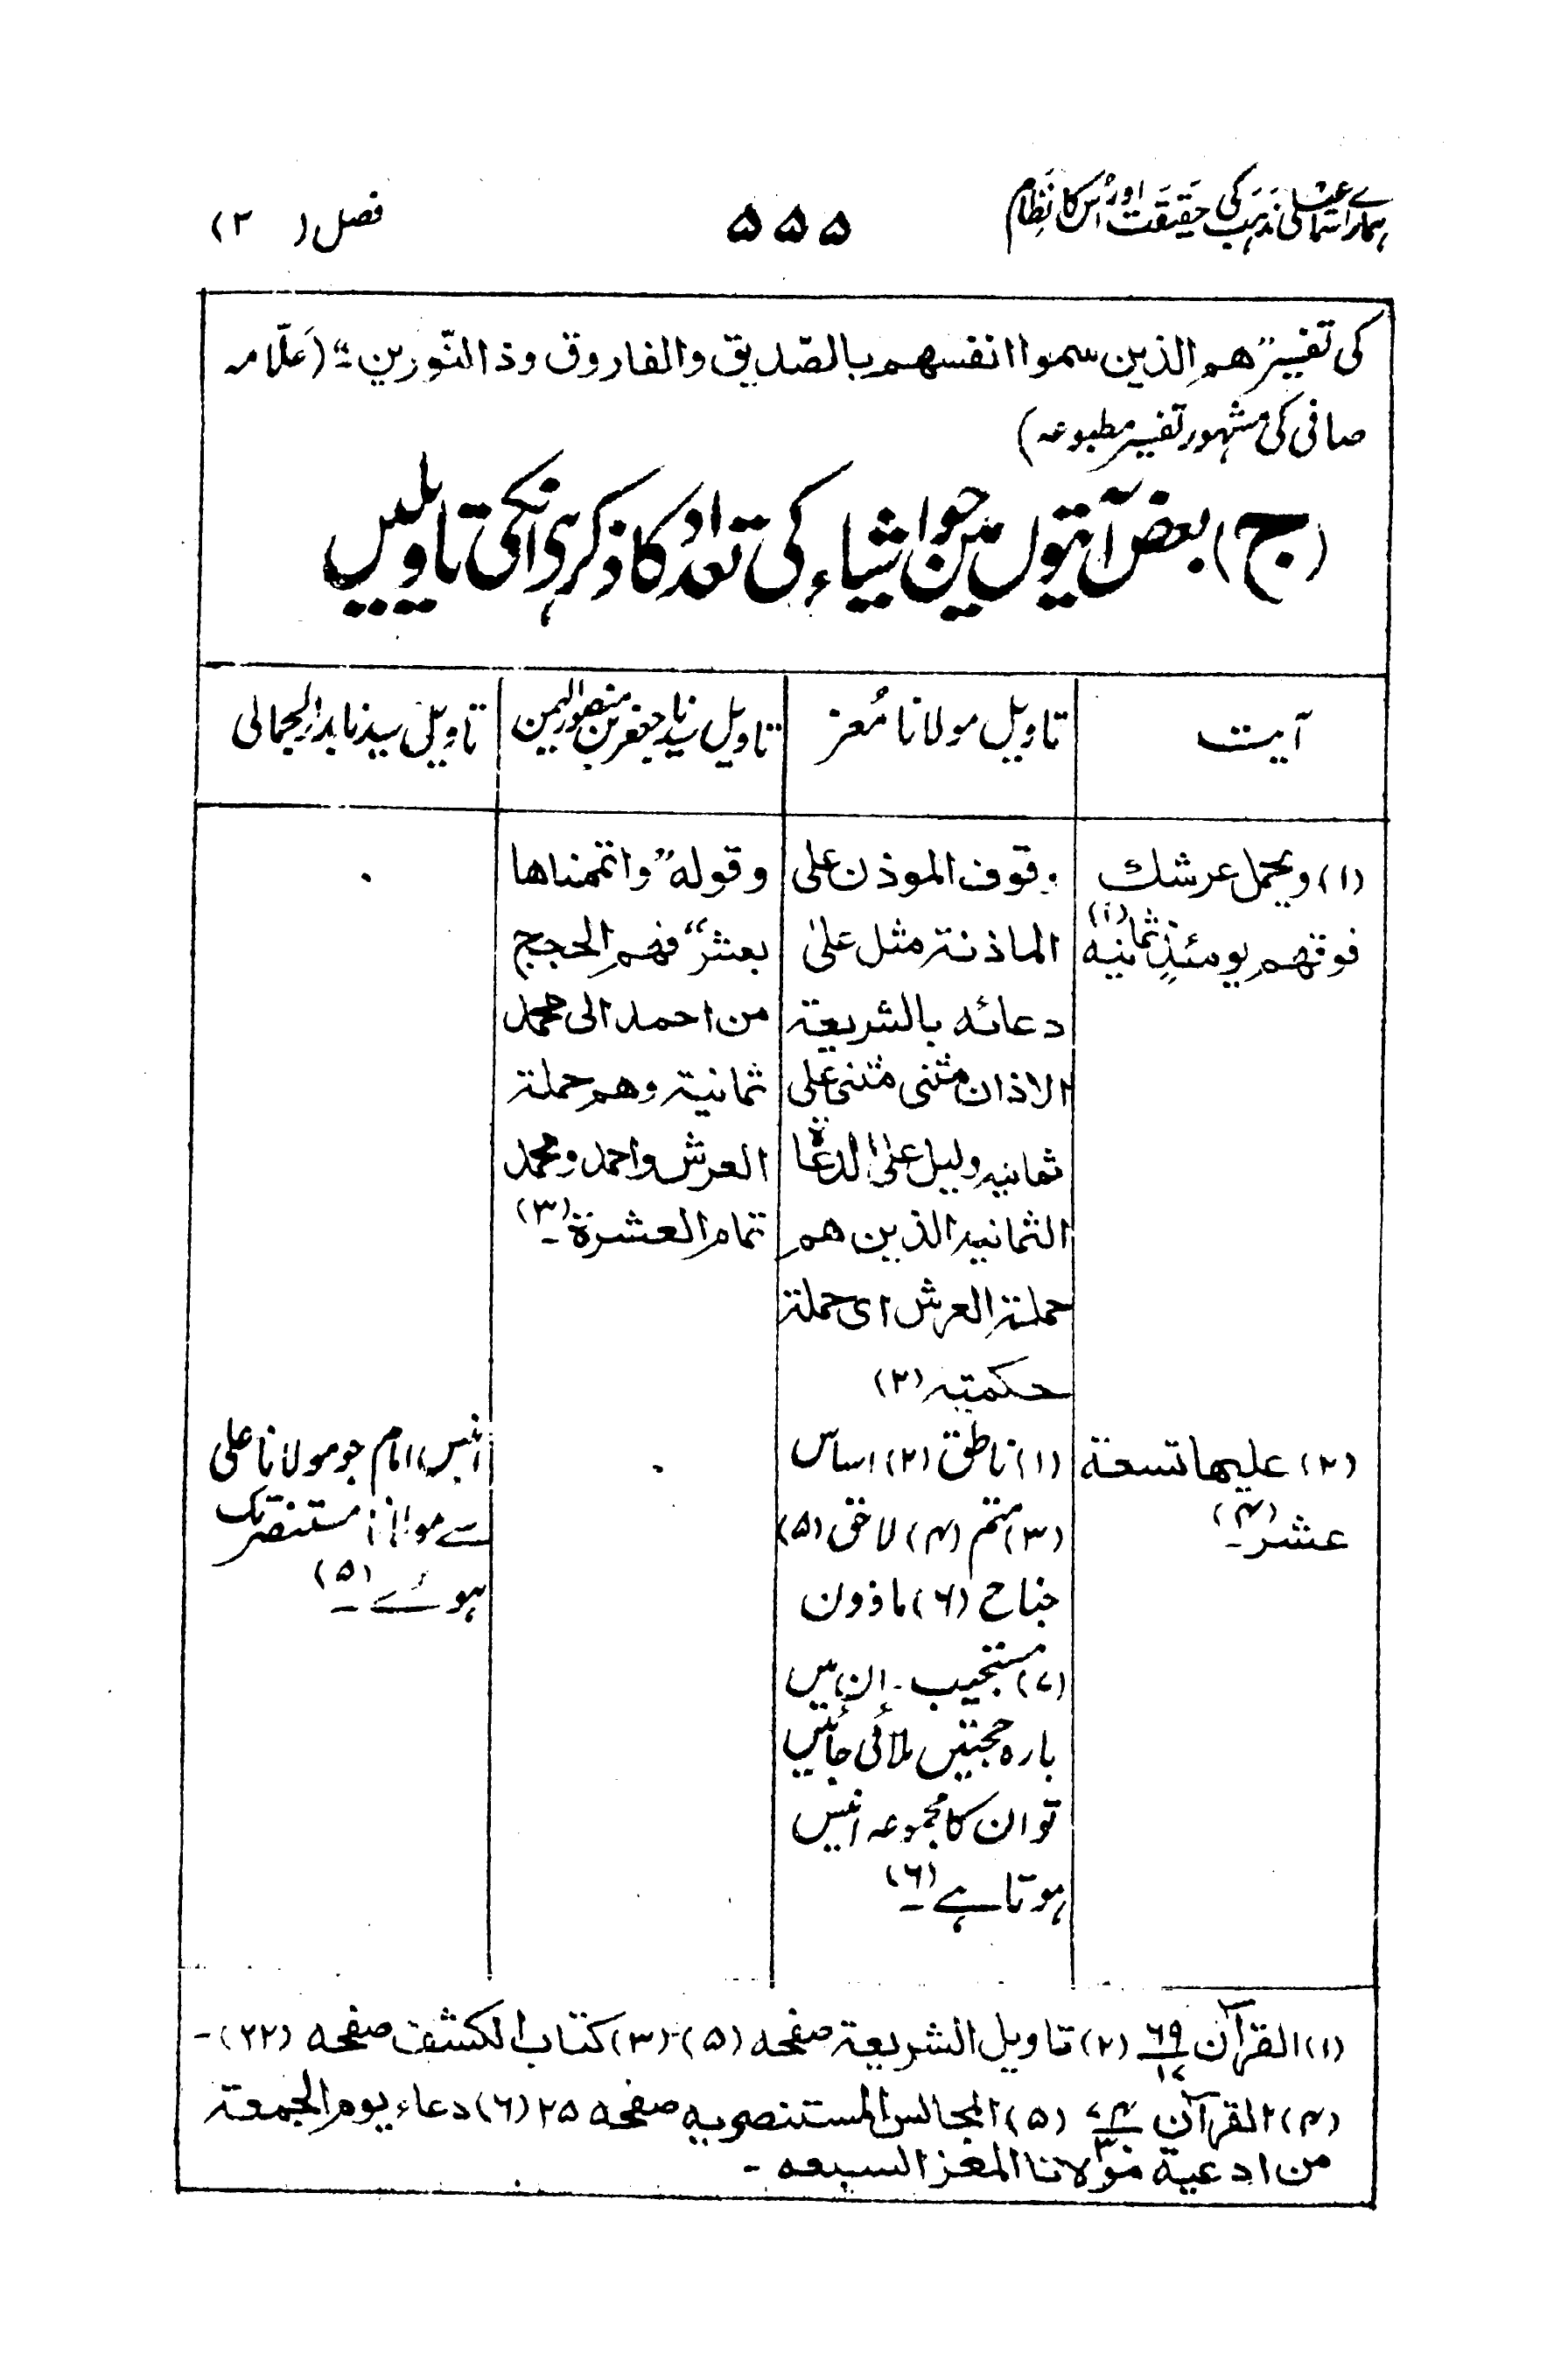 ہمارے اسماعیلی مذہب کی حقیقت اور اُس کا نظام
۵۵۵
فصل (۳)
کی تفسیر ”ھم الذین سموا انفسھم بالصّدیق والفاروق وذالنّورین“ (علّامہ
صافی کی مشہور تفسیر مطبوعہ)
(ج) بعض آیتوں میں جو اشیاء کی تعداد کا ذکر ہی انکی تاویلیں
آیت
تاویل مولانا مُعز
تاویل سیدنا جعفر بن منصور الیمن
تاویل سیدنا بدر الجمالی
(۱) ویحمل عرشك
فوقھم یومئذٍ ثمانیہ (۱)
وقوف الموذن علی
الماذنۃ مثل علیٰ
دعائہ بالشریعۃ
الاذان مثنی مثنی علی
ثمانیہ دلیل علیٰ الدعاۃ
الثمانیہ الذین ھم
حملۃ العرش ای حملۃ
حکمتہ (۲)
وقولہ ”واتممناھا
بعشر“ فھم الحجج
من احمد الی محمد
ثمانیۃ وھم حملۃ
العرش واحمد ومحمد
تمام العشرۃ۔ (۳)
(۲) علیھا تسعۃ
عشر۔ (۴)
(۱) ناطق (۲) اساس
(۳) متم (۴) لاحق (۵)
جناح (۶) ماذون
(۷) مستجیب۔ اِن میں
بارہ حجتیں ملائی جائیں
تو ان کا مجموعہ انیس
ہوتا ہے۔ (۶)
انیس امام جو مولانا علی
سے مولانا مستنصر تک
ہوئے۔ (۵)
(۱) القرآن ۶۹/۱۷ (۲) تاویل الشریعۃ صفحہ (۵)۔ (۳) کتاب الکشف صفحہ (۲۲)۔
(۴) القرآن ۷۴/۳۰ (۵) المجالس المستنصریہ صفحہ ۲۵ (۶) دعاء یوم الجمعۃ
من ادعیۃ مولانا المعز السبعہ۔